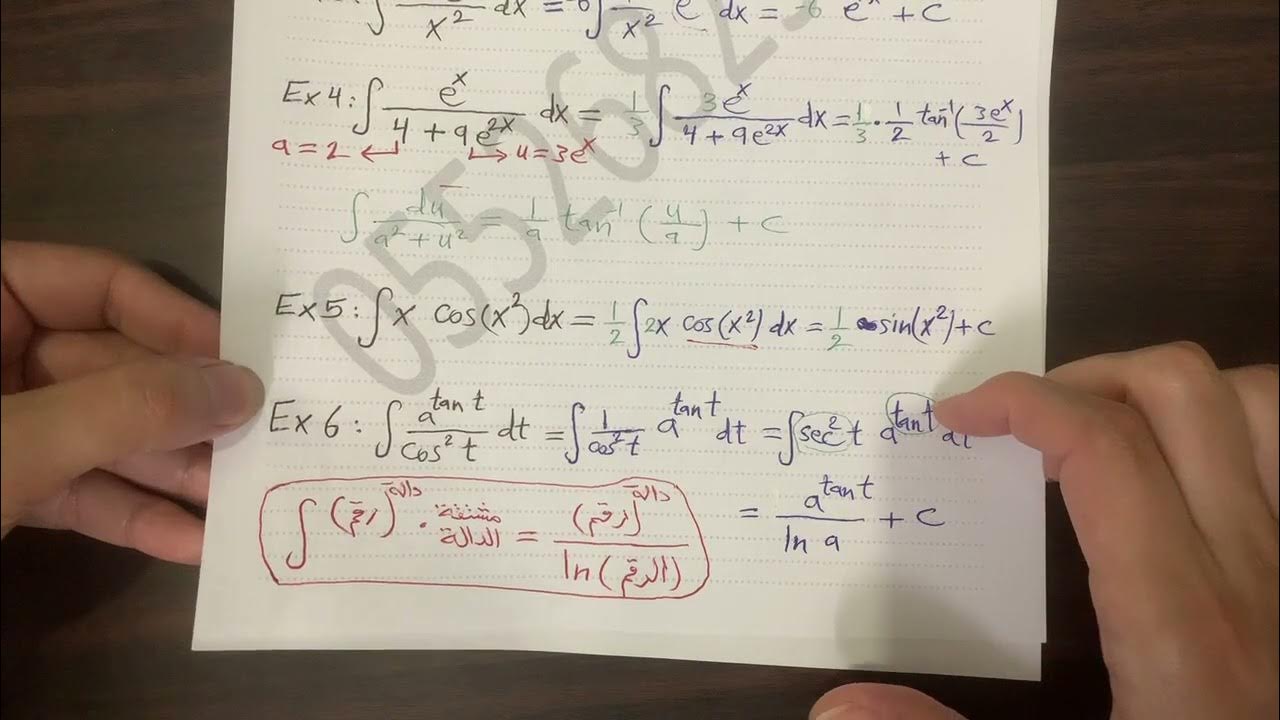 ∫ ―/x² dx = -6 ∫ ―/x² e dx = -6 eˣ + c
Ex 4: ∫ eˣ/(4 + 9e²ˣ) dx = 1/3 ∫ 3eˣ/(4 + 9e²ˣ) dx = 1/3 · 1/2 tan⁻¹(3eˣ/2)
a = 2 ← → u = 3eˣ + c
∫ du/(a² + u²) = 1/a tan⁻¹(u/a) + c
Ex 5: ∫ x cos(x²) dx = 1/2 ∫ 2x cos(x²) dx = 1/2 sin(x²) + c
Ex 6: ∫ a^(tan t)/cos² t dt = ∫ 1/cos² t a^(tan t) dt = ∫ sec² t a^(tan t) dt
= a^(tan t)/ln a + c
∫ (رقم)^دالة · مشتقة الدالة = (رقم)^دالة / ln(الرقم)
055268